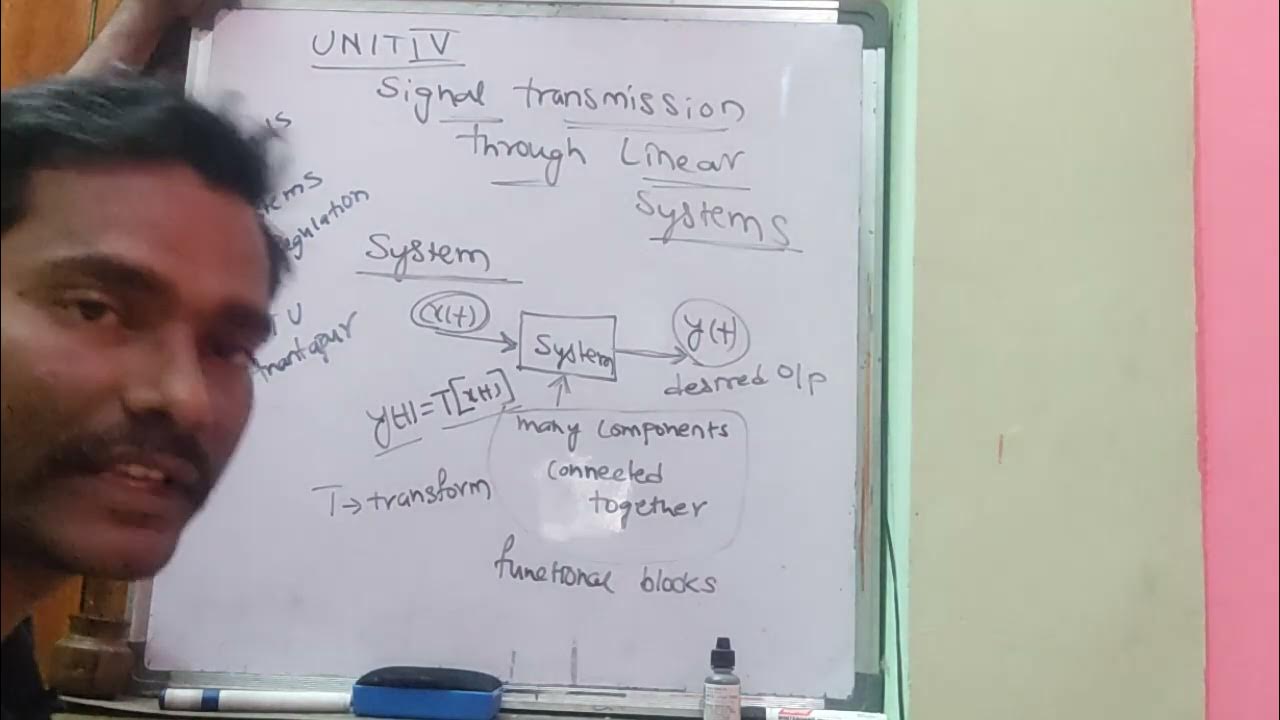 UNIT IV
Signal transmission
through Linear
Systems
System
x(t)
System
y(t)
desired O/p
y(t)=T[x(t)]
many components
connected
together
T→transform
functional blocks